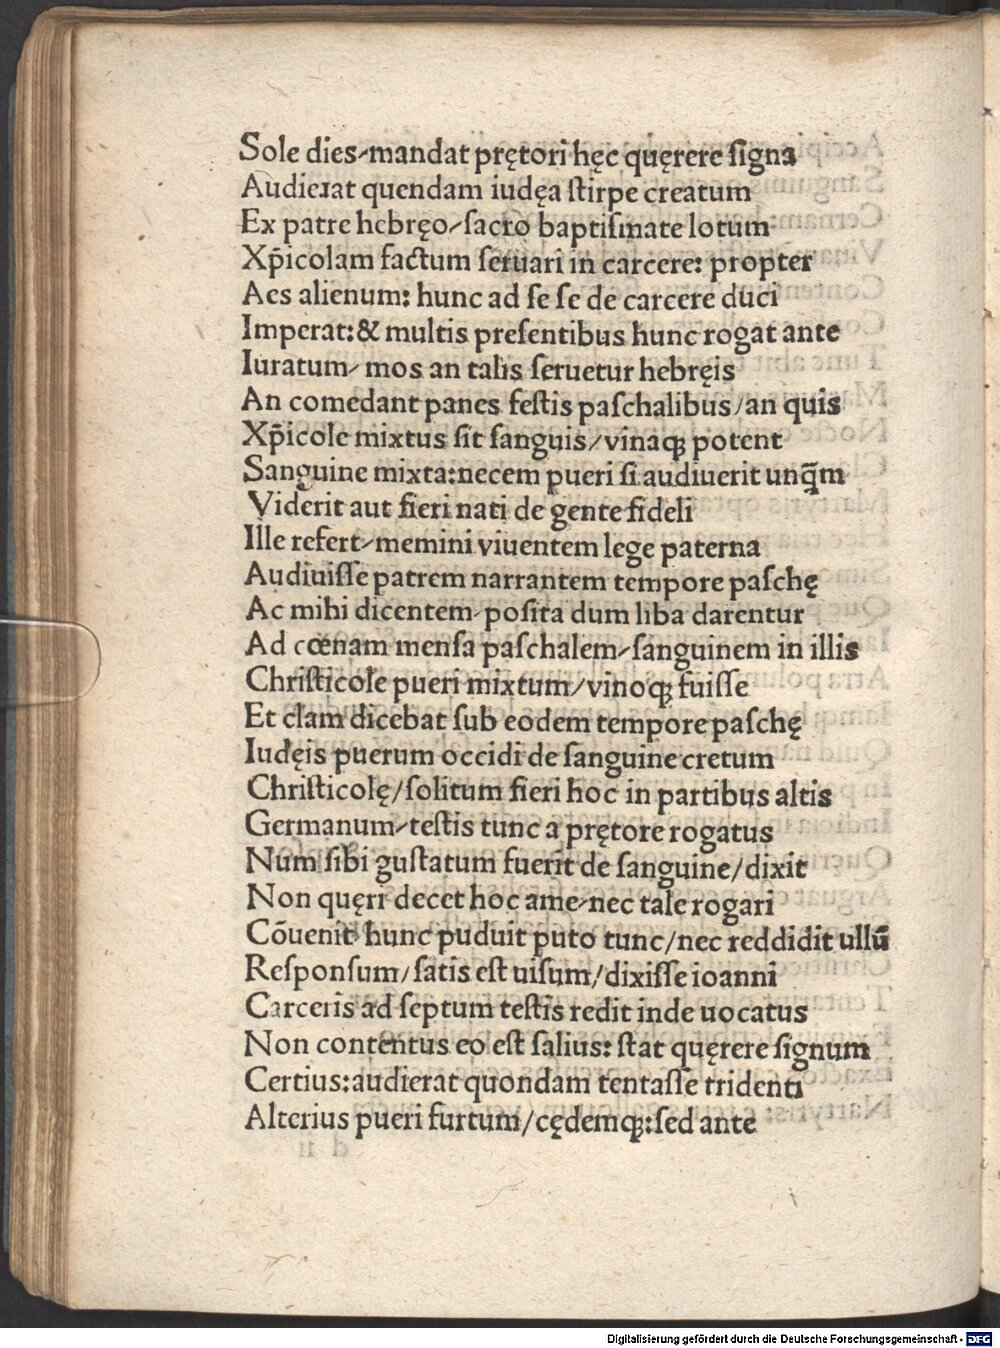 Sole dies⸗mandat prętori hęc quęrere ſigna
Audieɹat quendam iudęa ſtirpe creatum
Ex patre hebręo⸗ſacro baptiſmate lotum
Xp̄icolam factum ſeruari in carcere: propter
Aes alienum: hunc ad ſe ſe de carcere duci
Imperat:& multis preſentibus hunc rogat ante
Iuratum⸗ mos an talis ſeruetur hebręis
An comedant panes feſtis paſchalibus/an quis
Xp̄icole mixtus ſit ſanguis/vinaqꝫ potent
Sanguine mixta:necem pueri ſi audiuerit unq̄m
Viderit aut fieri nati de gente fideli
Ille refert⸗memini viuentem lege paterna
Audiuiſſe patrem narrantem tempore paſchę
Ac mihi dicentem⸗poſita dum liba darentur
Ad cœnam menſa paſchalem⸗ſanguinem in illis
Chriſticole pueri mixtum/vinoqꝫ fuiſſe
Et clam dicebat ſub eodem tempore paſchę
Iudęis puerum occidi de ſanguine cretum
Chriſticolę/ſolitum fieri hoc in partibus altis
Germanum⸗teſtis tunc a prętore rogatus
Num ſibi guſtatum fuerit de ſanguine/dixit
Non quęri decet hoc ame⸗nec tale rogari
Cōuenit⸗ hunc puduit puto tunc/nec reddidit ullū
Reſponſum/ſatis eſt uiſum/dixiſſe ioanni
Carceris ad ſeptum teſtis redit inde uocatus
Non contentus eo eſt ſalius: ſtat quęrere ſignum
Certius:audierat quondam tentaſſe tridenti
Alterius pueri furtum/cędemqꝫ:ſed ante
Digitalisierung gefördert durch die Deutsche Forschungsgemeinschaft - DFG